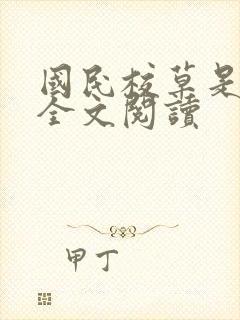 國民校草是
全文閱讀
甲丁